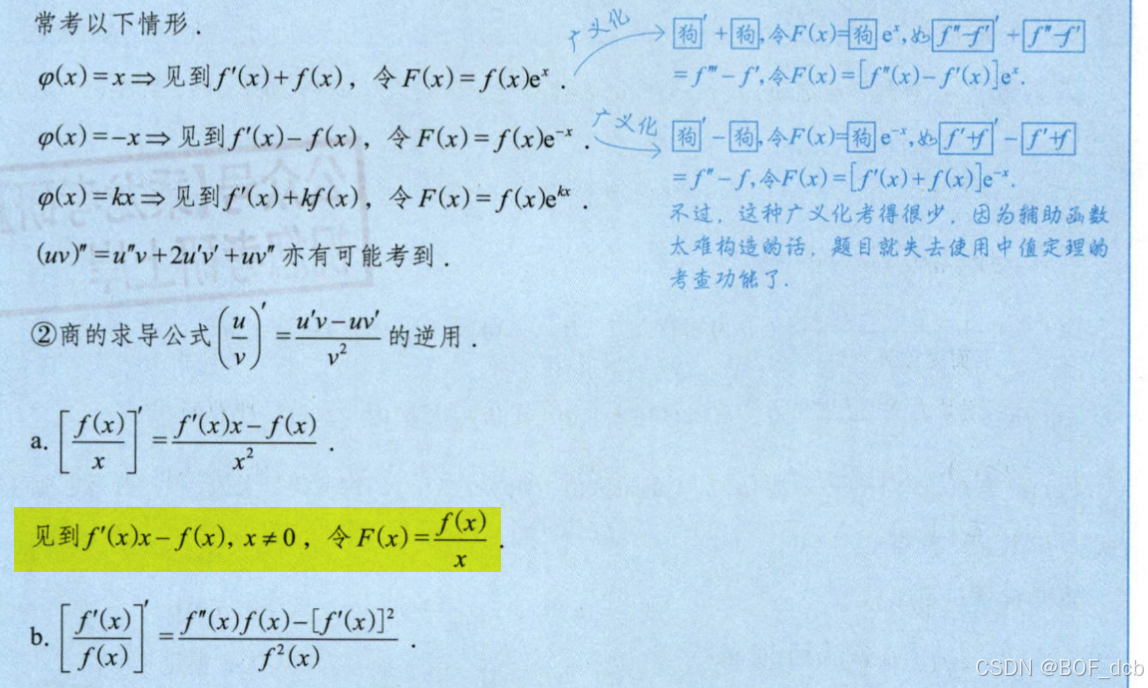 常考以下情形.
φ(x)=x⇒见到f′(x)+f(x), 令F(x)=f(x)eˣ.
φ(x)=-x⇒见到f′(x)-f(x), 令F(x)=f(x)e⁻ˣ.
φ(x)=kx⇒见到f′(x)+kf(x), 令F(x)=f(x)eᵏˣ.
(uv)″=u″v+2u′v′+uv″亦有可能考到.
广义化
狗′+狗,令F(x)=狗eˣ,如f″-f′′+f″-f′
=f‴-f′,令F(x)=[f″(x)-f′(x)]eˣ.
广义化
狗′-狗,令F(x)=狗e⁻ˣ,如f′+f′-f′+f
=f″-f,令F(x)=[f′(x)+f(x)]e⁻ˣ.
不过,这种广义化考得很少,因为辅助函数
太难构造的话,题目就失去使用中值定理的
考查功能了.
②商的求导公式(u/v)′=(u′v-uv′)/v²的逆用.
a. [f(x)/x]′=(f′(x)x-f(x))/x².
见到f′(x)x-f(x), x≠0, 令F(x)=f(x)/x.
b. [f′(x)/f(x)]′=(f″(x)f(x)-[f′(x)]²)/f²(x).
CSDN @BOF_dcb